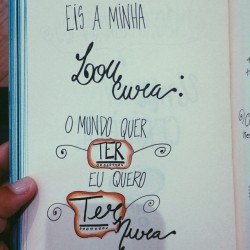 EIS A MINHA
Lou
cura:
O MUNDO QUER
TER
EU QUERO
Ter
Nura